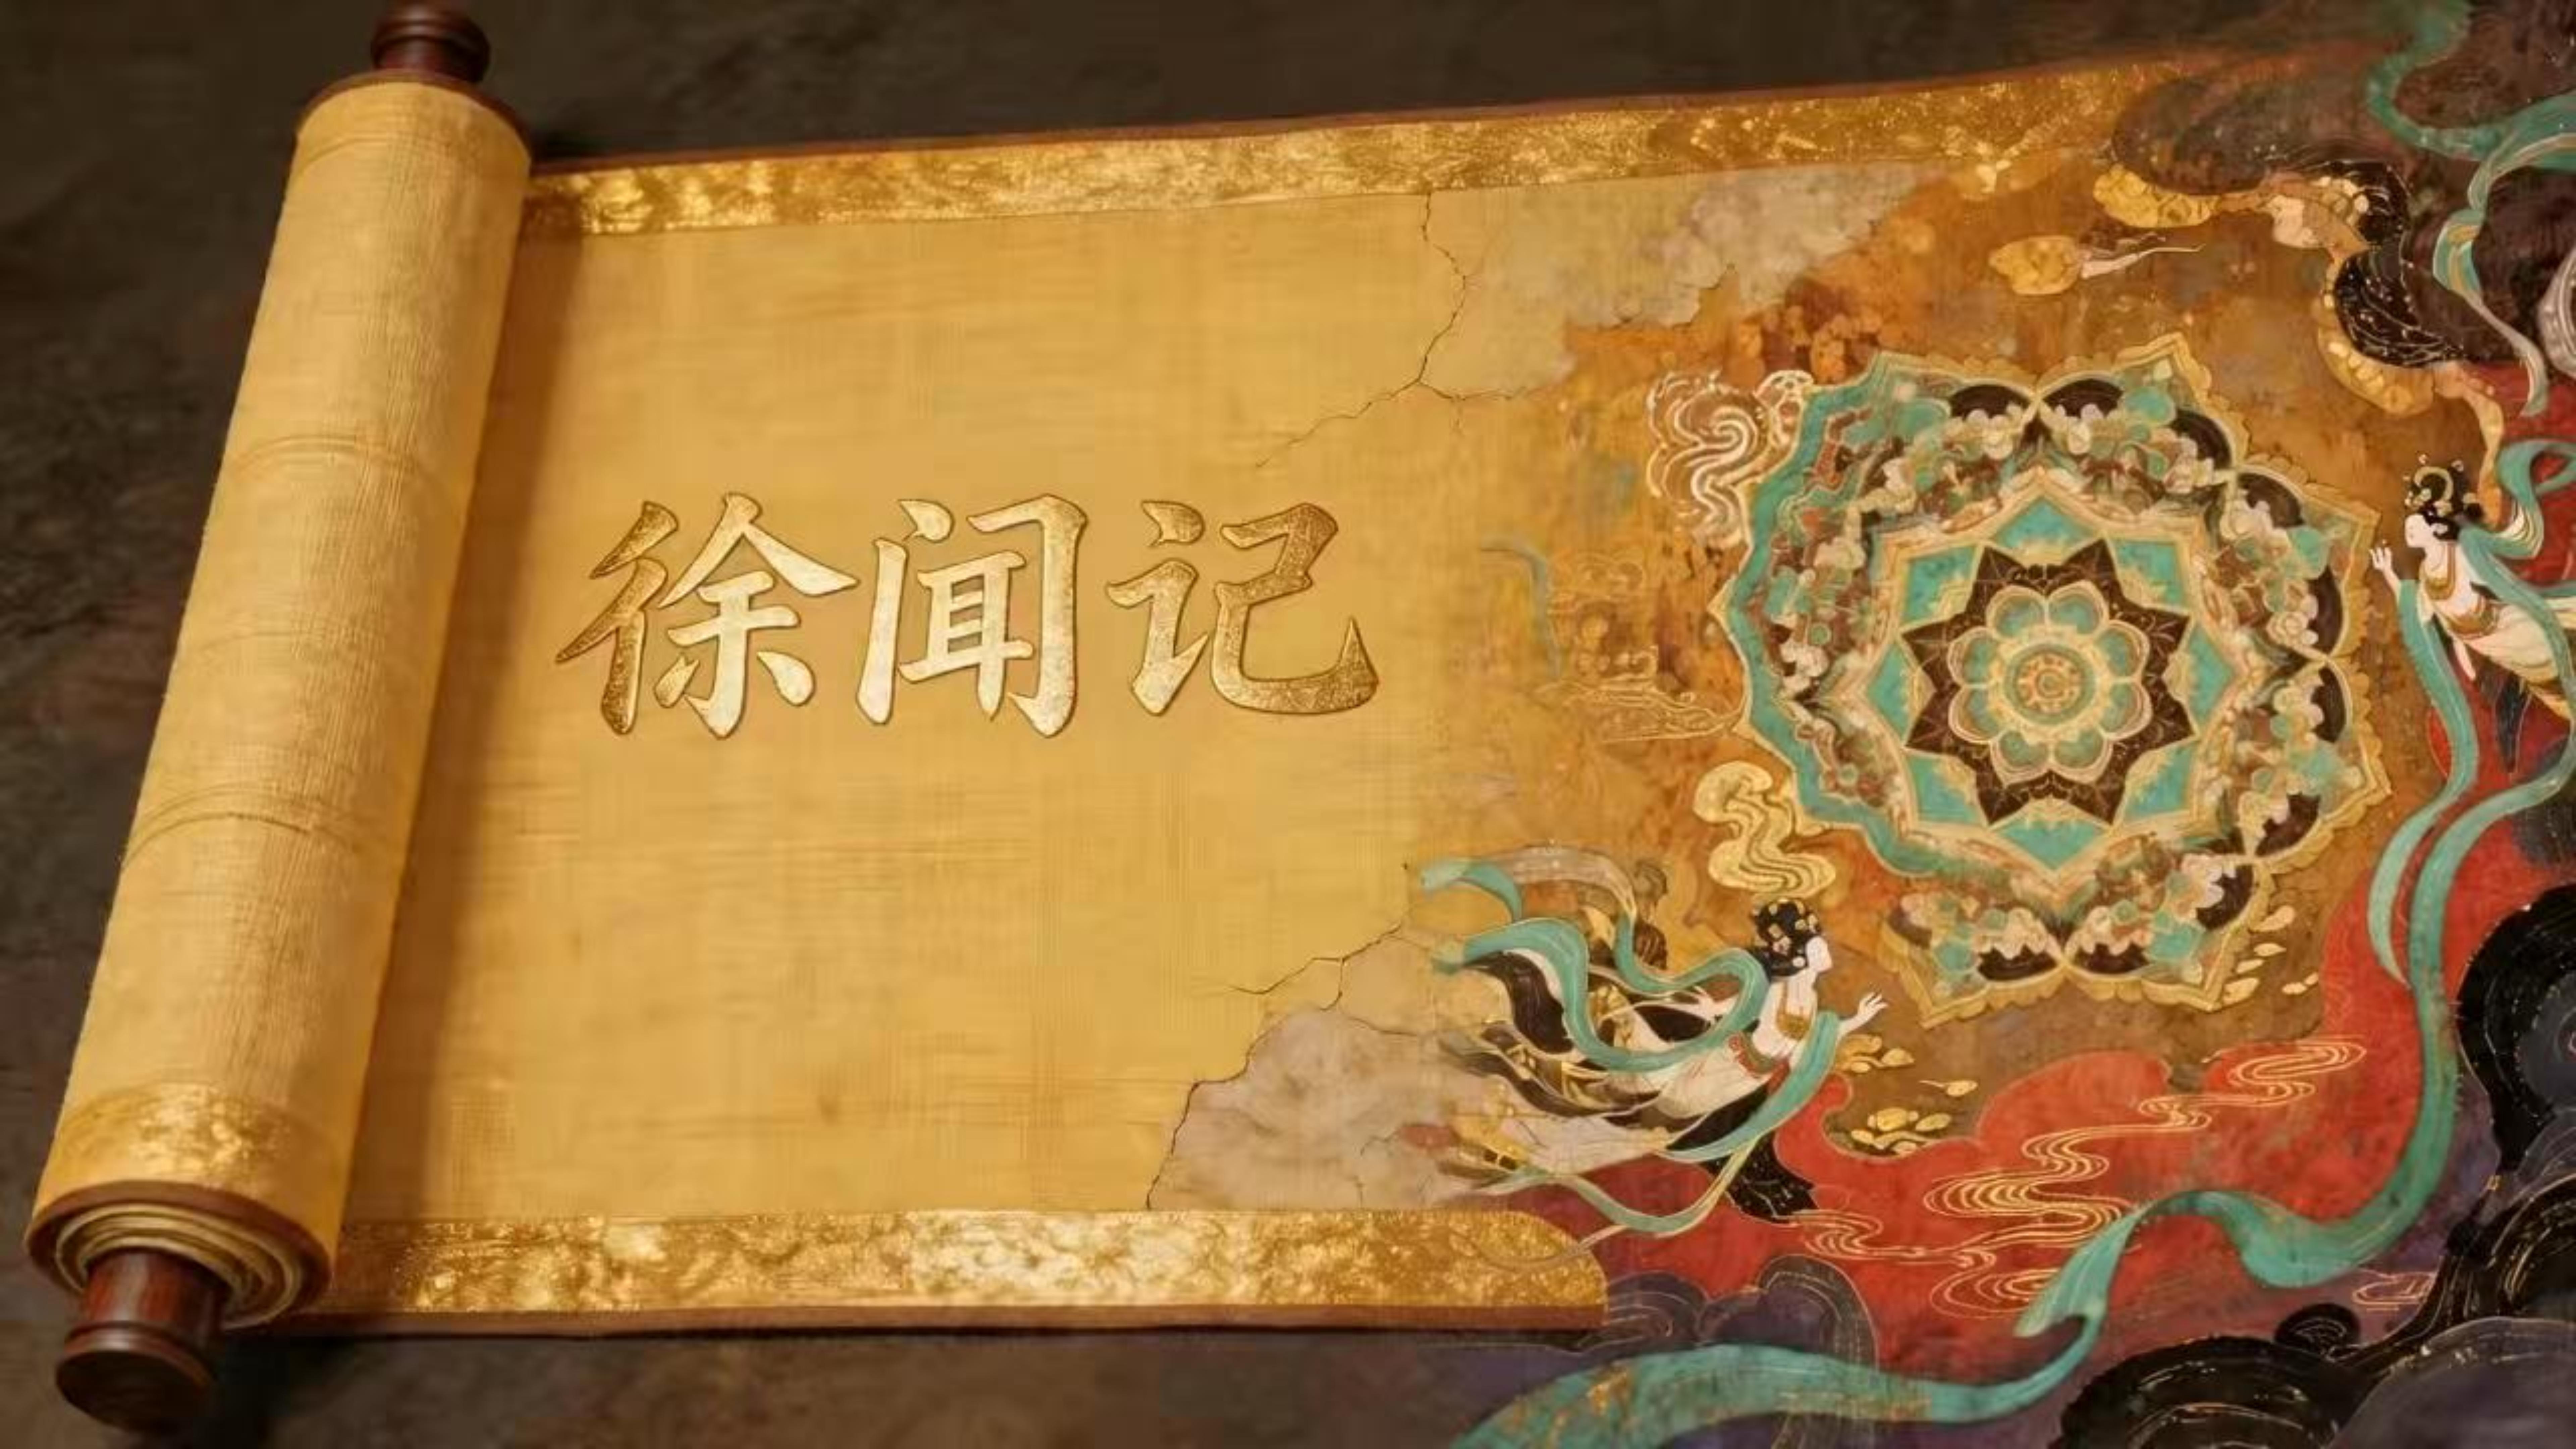 徐闻记